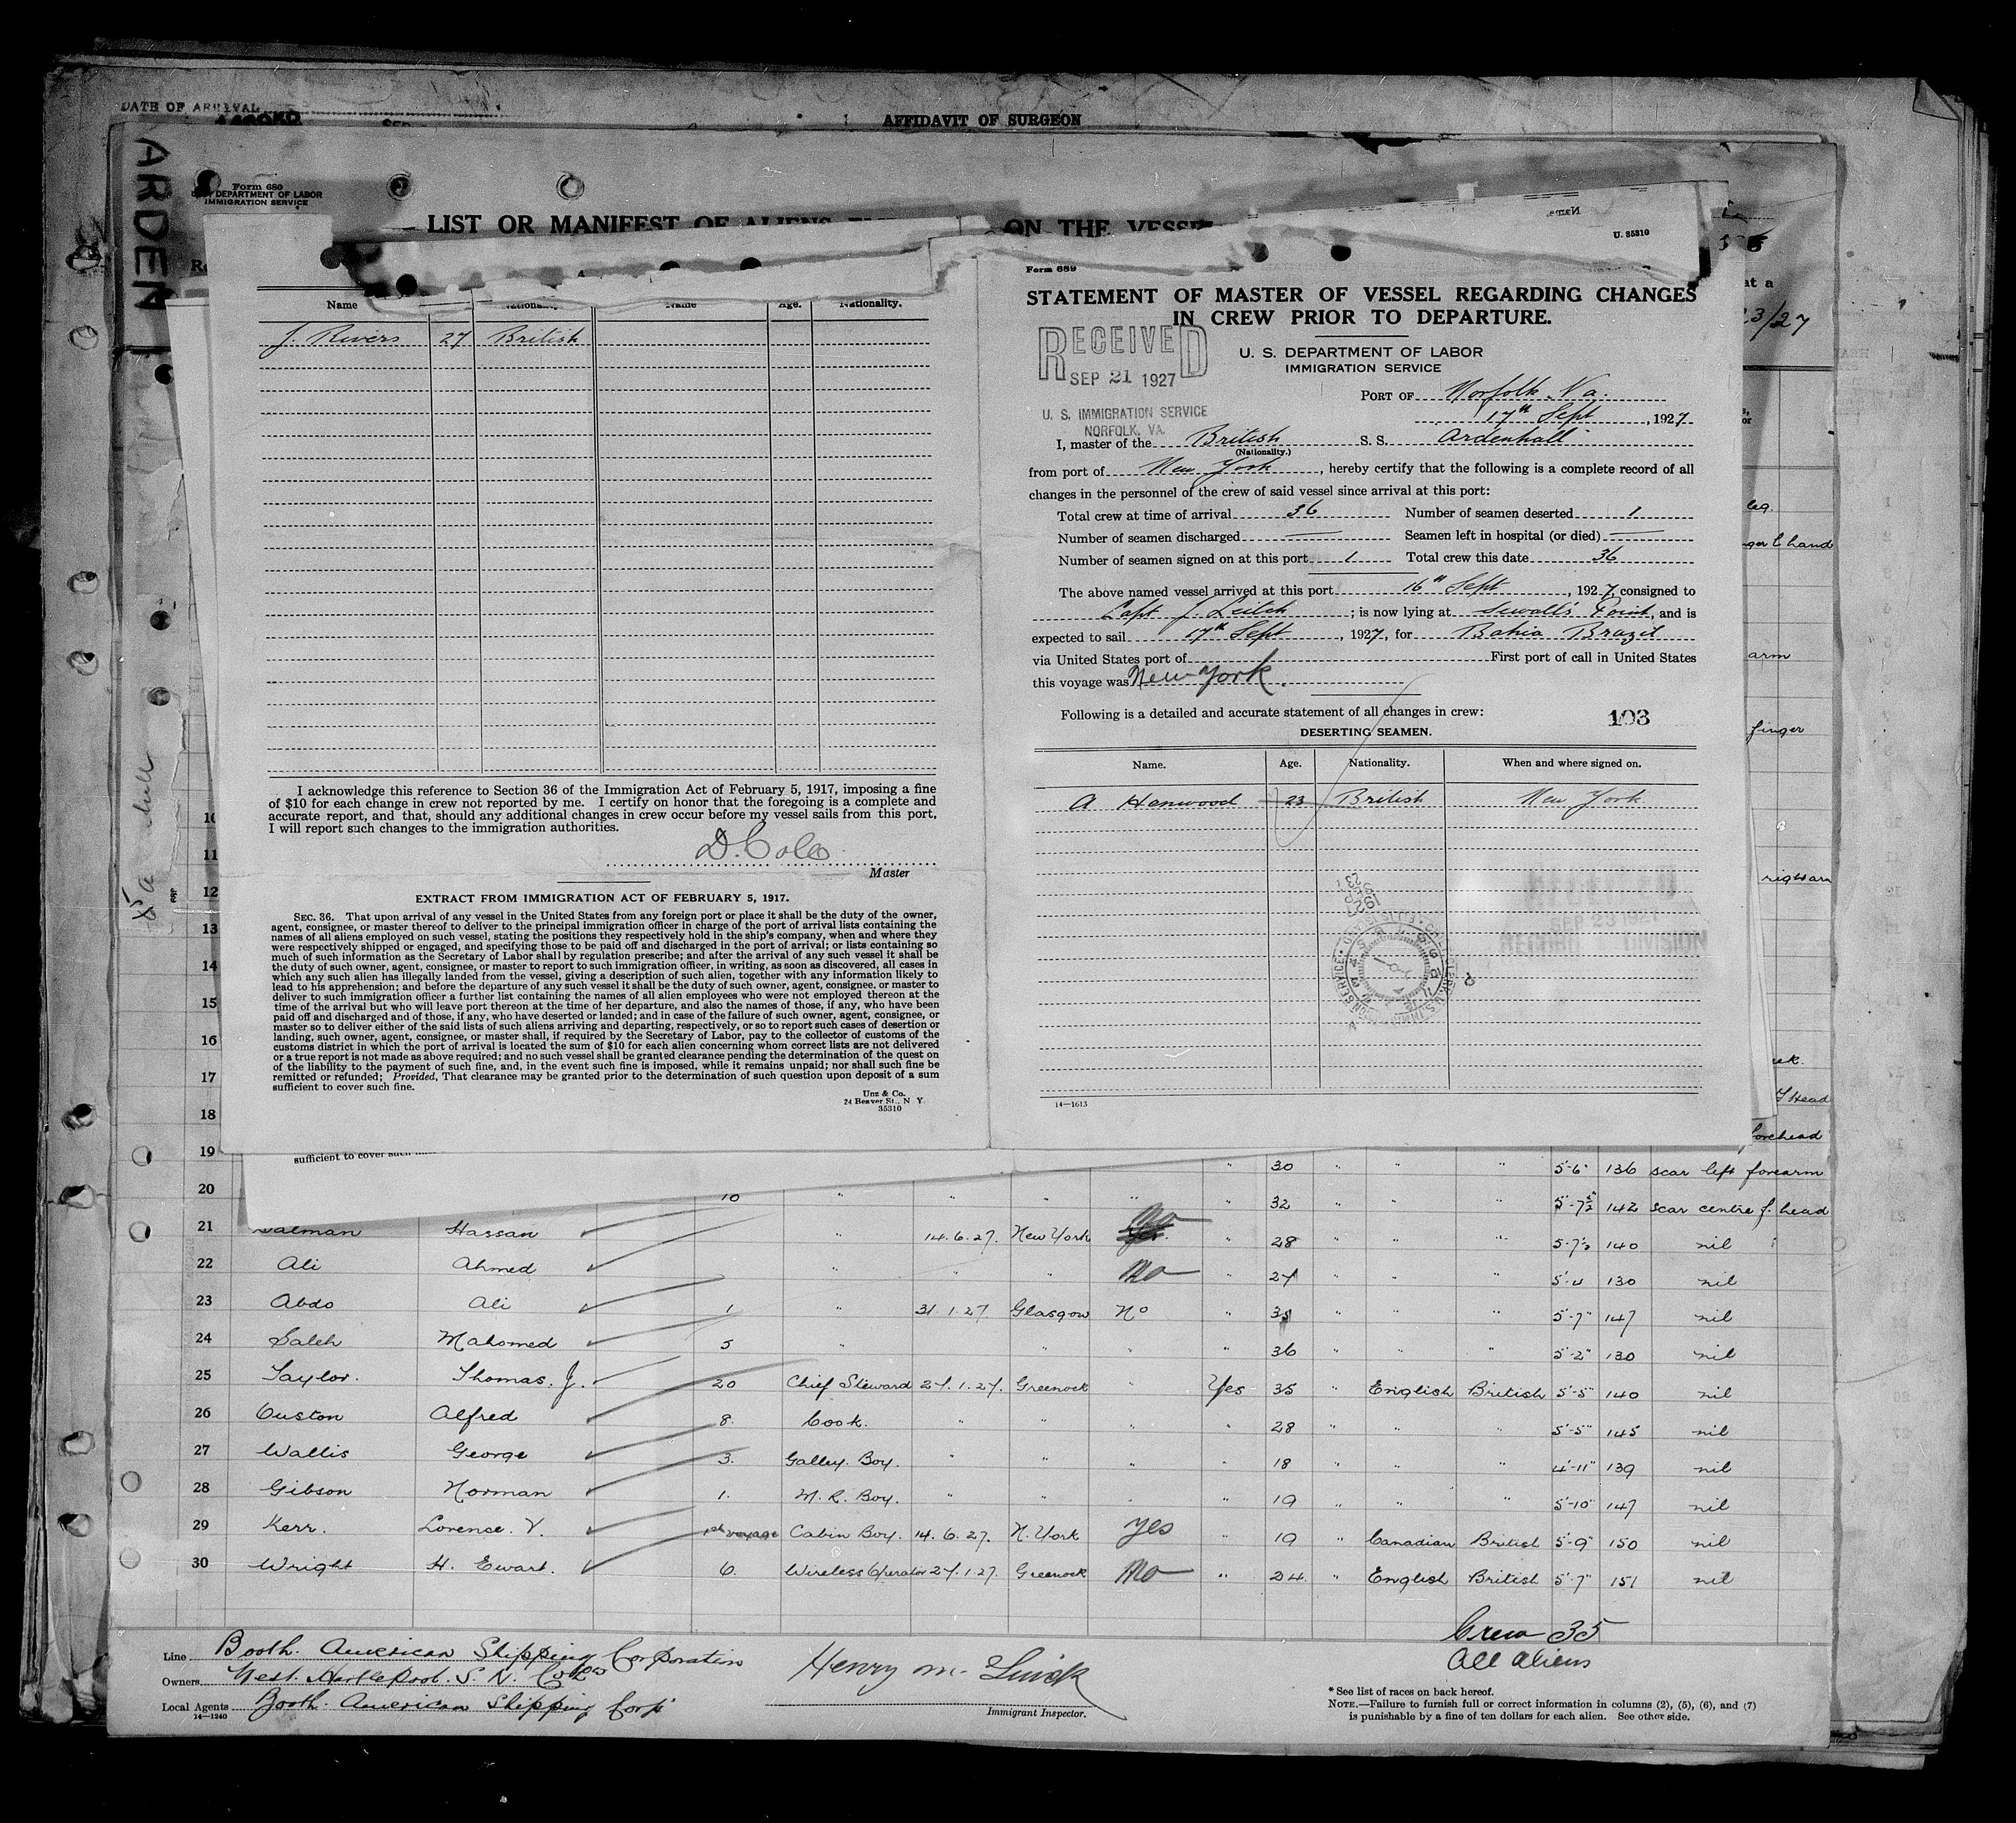 DATE OF ARRIVAL
AFFIDAVIT OF SURGEON
ARDEN
Form 680
U. S. DEPARTMENT OF LABOR
IMMIGRATION SERVICE
LIST OR MANIFEST OF ALIENS
ON THE VESSEL
at a
23/27
Name Nationality. Name Age. Nationality.
J. Rivers 27 British
I acknowledge this reference to Section 36 of the Immigration Act of February 5, 1917, imposing a fine
of $10 for each change in crew not reported by me. I certify on honor that the foregoing is a complete and
accurate report, and that, should any additional changes in crew occur before my vessel sails from this port,
I will report such changes to the immigration authorities.
D. Cole
Master
EXTRACT FROM IMMIGRATION ACT OF FEBRUARY 5, 1917.
SEC. 36. That upon arrival of any vessel in the United States from any foreign port or place it shall be the duty of the owner,
agent, consignee, or master thereof to deliver to the principal immigration officer in charge of the port of arrival lists containing the
names of all aliens employed on such vessel, stating the positions they respectively hold in the ship's company, when and where they
were respectively shipped or engaged, and specifying those to be paid off and discharged in the port of arrival; or lists containing so
much of such information as the Secretary of Labor shall by regulation prescribe; and after the arrival of any such vessel it shall be
the duty of such owner, agent, consignee, or master to report to such immigration officer, in writing, as soon as discovered, all cases in
which any such alien has illegally landed from the vessel, giving a description of such alien, together with any information likely to
lead to his apprehension; and before the departure of any such vessel it shall be the duty of such owner, agent, consignee, or master to
deliver to such immigration officer a further list containing the names of all alien employees who were not employed thereon at the
time of the arrival but who will leave port thereon at the time of her departure, and also the names of those, if any, who have been
paid off and discharged and of those, if any, who have deserted or landed; and in case of the failure of such owner, agent, consignee, or
master so to deliver either of the said lists of such aliens arriving and departing, respectively, or so to report such cases of desertion or
landing, such owner, agent, consignee, or master shall, if required by the Secretary of Labor, pay to the collector of customs of the
customs district in which the port of arrival is located the sum of $10 for each alien concerning whom correct lists are not delivered
or a true report is not made as above required; and no such vessel shall be granted clearance pending the determination of the quest on
of the liability to the payment of such fine, and, in the event such fine is imposed, while it remains unpaid; nor shall such fine be
remitted or refunded; Provided, That clearance may be granted prior to the determination of such question upon deposit of a sum
sufficient to cover such fine.
Unz & Co.
24 Beaver St., N Y.
35310
U. 35310
Form 689
STATEMENT OF MASTER OF VESSEL REGARDING CHANGES
IN CREW PRIOR TO DEPARTURE.
RECEIVED
SEP 21 1927
U. S. IMMIGRATION SERVICE
NORFOLK, VA.
U. S. DEPARTMENT OF LABOR
IMMIGRATION SERVICE
PORT OF Norfolk Va.
17th Sept, 1927
I, master of the British S. S. Ardenhall
(Nationality.)
from port of New York, hereby certify that the following is a complete record of all
changes in the personnel of the crew of said vessel since arrival at this port:
Total crew at time of arrival 36 Number of seamen deserted 1
Number of seamen discharged — Seamen left in hospital (or died) —
Number of seamen signed on at this port 1 Total crew this date 36
The above named vessel arrived at this port 16th Sept, 1927, consigned to
Capt J. Leitch; is now lying at Sewall's Point, and is
expected to sail 17th Sept, 1927, for Bahia Brazil
via United States port of First port of call in United States
this voyage was New York.
Following is a detailed and accurate statement of all changes in crew:
103
DESERTING SEAMEN.
Name. Age. Nationality. When and where signed on.
A Henwood 23 British New York
SEP 23 1927
RECORD DIVISION
14—1613
leg
arm
finger
forehead
10
11
12
13
14
15
16
17
18
19 " 30 " " " 5'-6" 136 scar left forearm
sufficient to cover such
20 10 " " " " " 32 " " " 5'-7½" 142 scar centre f. head
21 Salman Hassan " 14.6.27. New York " 28 " " " 5-7½ 140 nil
22 Ali Ahmed " " " No " 27 " " " 5'-4 130 nil
23 Abdo Ali 1. " 31.1.27. Glasgow No " 38 " " " 5'-7" 147 nil
24 Saleh Mahomed 5 " " " " " 36 " " " 5'-2" 130 nil
25 Taylor. Thomas. J. 20 Chief Steward 27.1.27. Greenock " Yes 35 " English British 5'-5" 140 nil
26 Custon Alfred 8. Cook. " " " " 28 " " " 5'-5" 145 nil
27 Wallis George 3. Galley. Boy. " " " " 18 " " " 4'-11" 139 nil
28 Gibson Norman 1. M. R. Boy. " " " " 19 " " " 5'-10" 147 nil
29 Kerr. Lorence. V. 1st voyage Cabin Boy. 14.6.27. N. York Yes " 19 " Canadian British 5'-9" 150 nil
30 Wright H. Ewart. 6. Wireless Operator 27.1.27. Greenock No " 24 " English British 5'-7" 151 nil
Crew 35
All aliens
Line Booth. American Shipping Corporation
Owners West. Hartlepool. S. N. Co Ltd
Local Agents Booth. American Shipping Corp'
14—1240
Henry M.
Immigrant Inspector.
* See list of races on back hereof.
NOTE.—Failure to furnish full or correct information in columns (2), (5), (6), and (7)
is punishable by a fine of ten dollars for each alien. See other side.